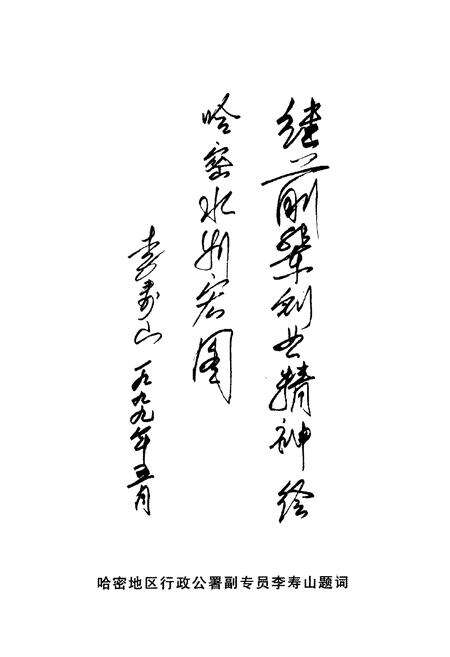 继前辈创业精神绘
哈密水利宏图
李寿山 一九九九年五月
哈密地区行政公署副专员李寿山题词